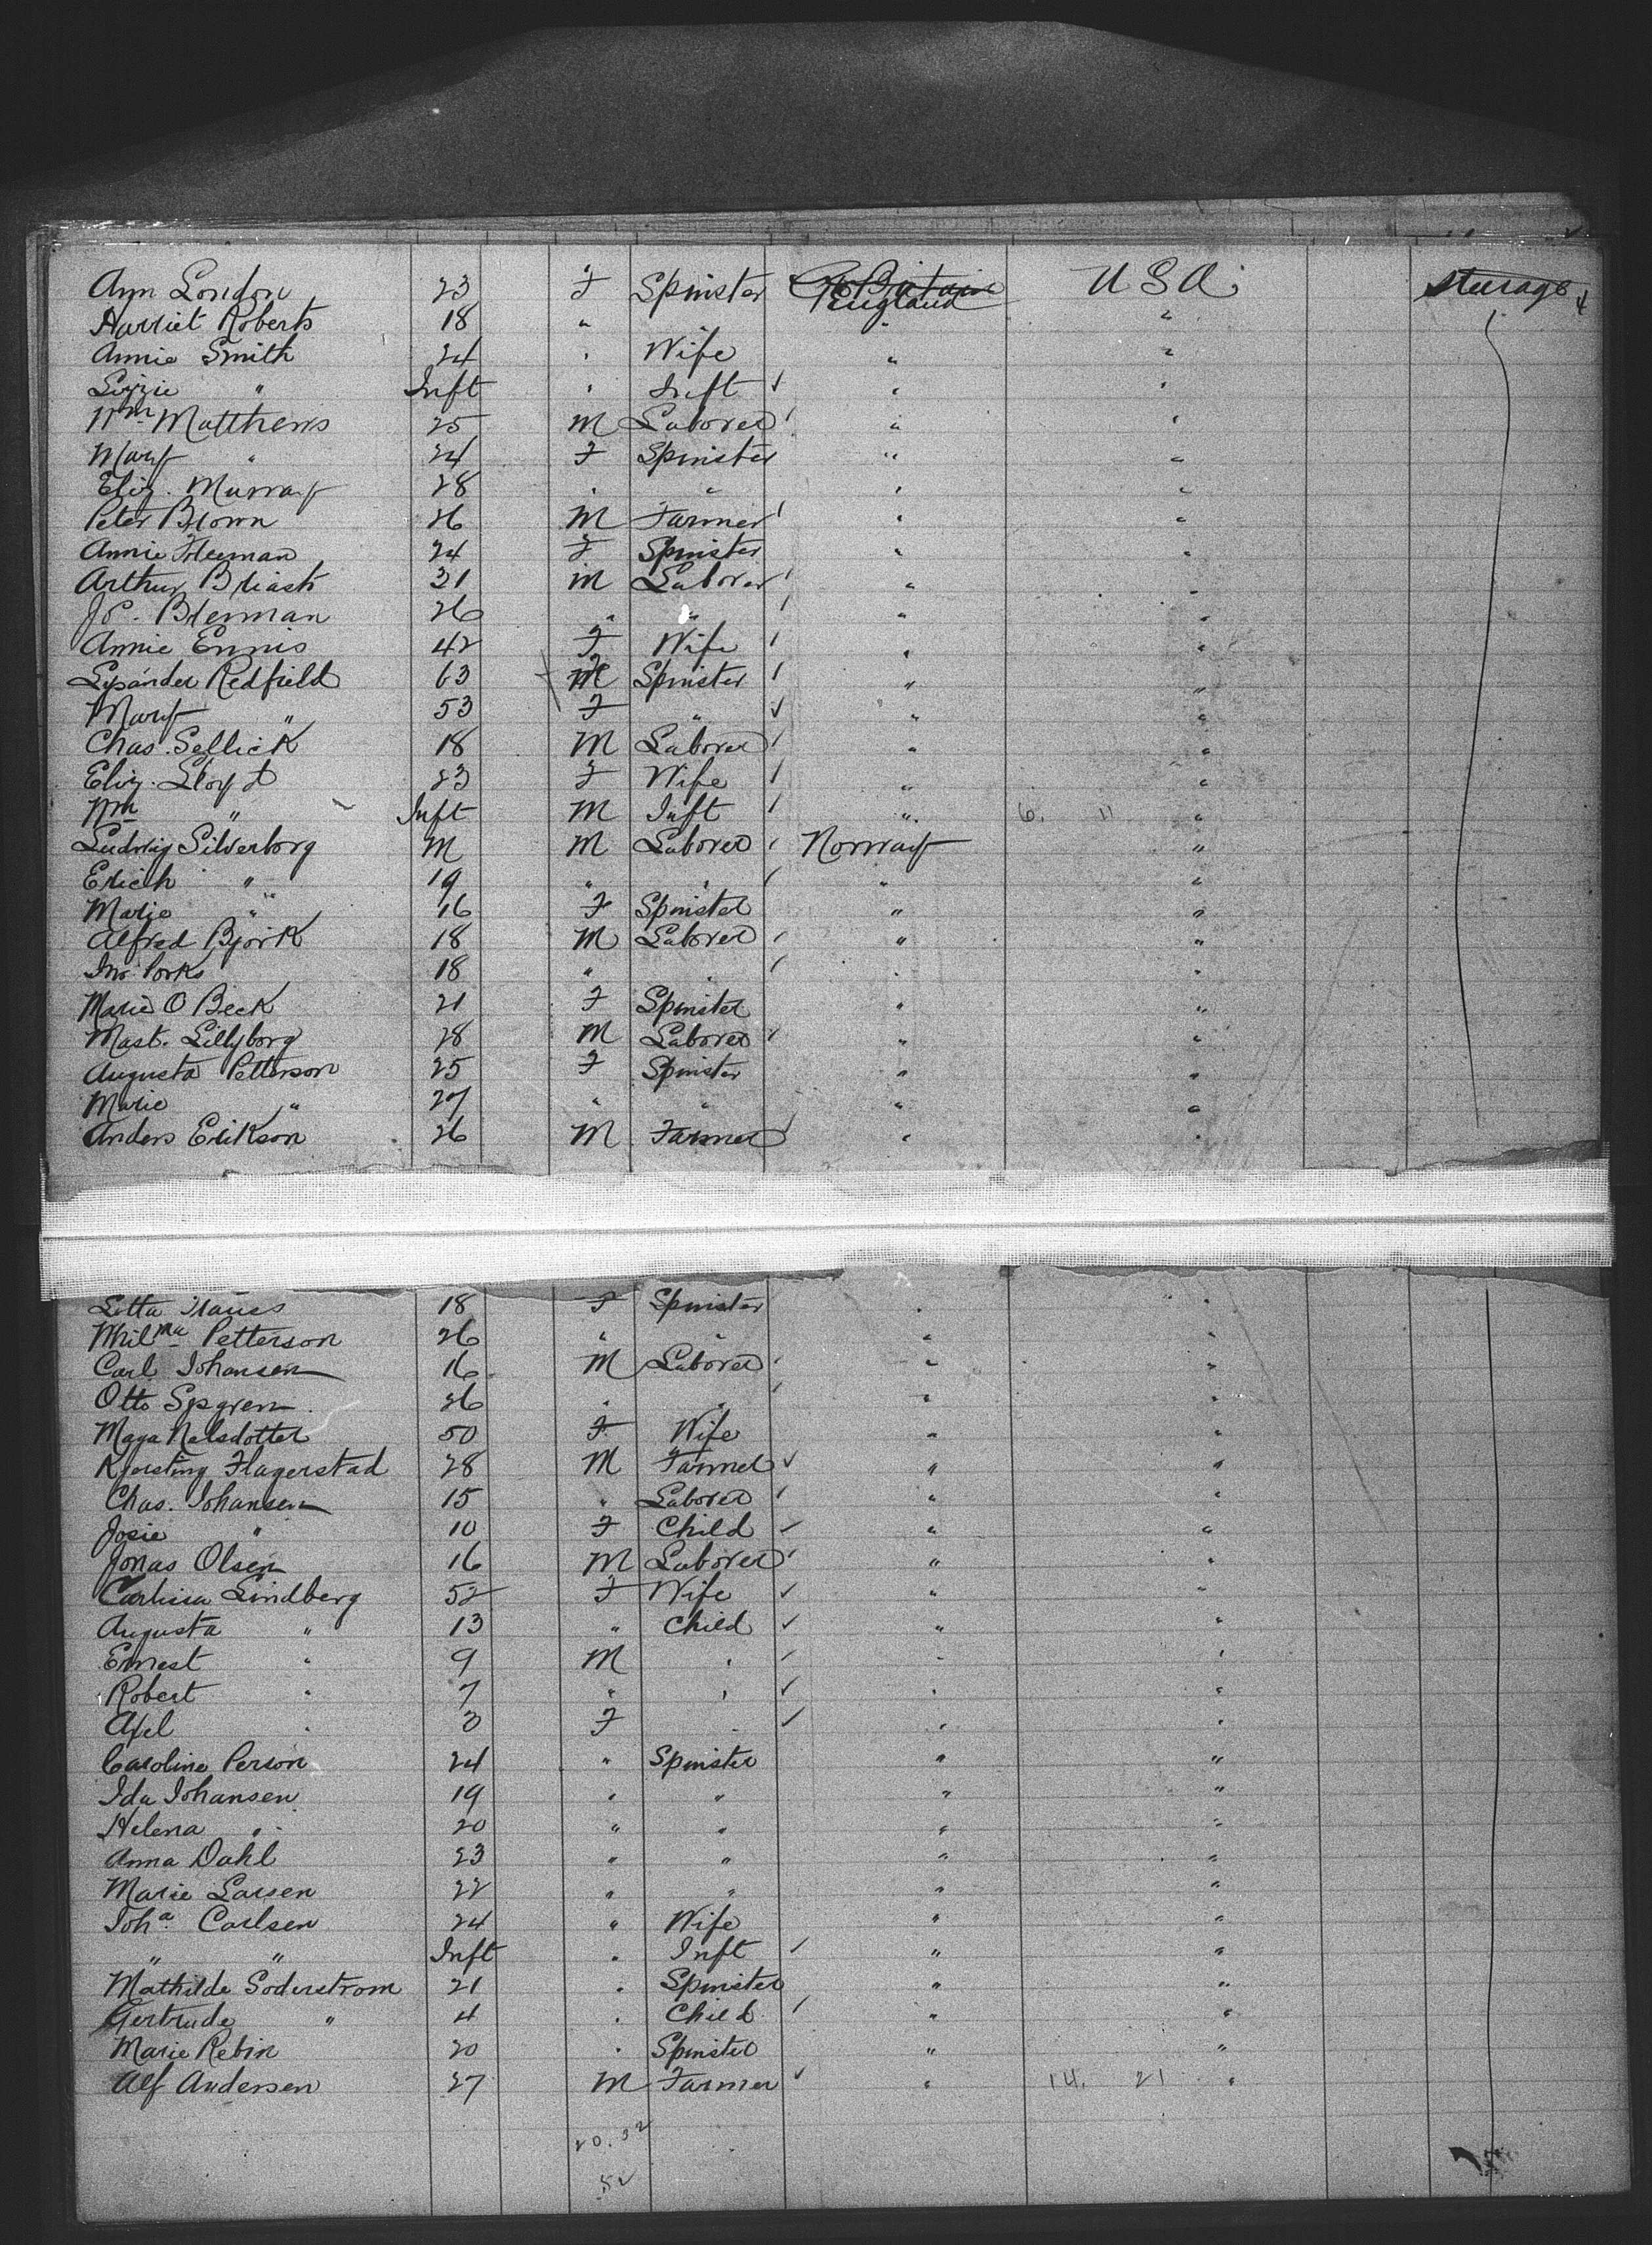 Ann London 23 F Spinster Gt Britain England U S A. Steerage
Harriet Roberts 18 " " "
Annie Smith 24 " Wife " "
Lizzie " Inft " Inft ✓ " "
Wm Matthews 25 M Laborer " "
Mary " 24 F Spinster " "
Eliz. Murray 28 " " " "
Peter Brown 26 M Farmer " "
Annie Freeman 24 F Spinster " "
Arthur 31 M Laborer " "
26 " " " "
Annie Ennis 42 F Wife " "
Lysander Redfield 63 M F Spinster " "
Mary " 53 F " ✓ " "
Chas. Sellick 18 M Laborer " "
Eliz. Lloyd 23 F Wife " "
Wm " Inft M Inft " 6. 11 "
Ludwig Silverborg M M Laborer Norway "
Erich " 19 " " " "
Marie " 16 F Spinster " "
Alfred Bjork 18 M Laborer " "
18 " " " "
Marie O Beck 21 F Spinster " "
Mast. Lillyborg 28 M Laborer " "
Augusta Petterson 25 F Spinster " "
Marie " 27 " " " "
Anders Erikson 26 M Farmer " "
Lotta 18 F Spinster " "
Wilma Petterson 26 " " " "
Carl Johansen 16 M Laborer " "
Otto 26 " " " "
Maya Nelsdotter 50 F Wife " "
Flagerstad 28 M Farmer ✓ " "
Chas. Johansen 15 " Laborer " "
Josie " 10 F Child ✓ " "
Jonas Olsen 16 M Laborer " "
Lindberg 52 F Wife ✓ " "
Augusta " 13 " Child ✓ " "
Ernest " 9 M " ✓ " "
Robert " 7 " " ✓ " "
Axel " 3 F " ✓ " "
Caroline Person 24 " Spinster " "
Ida Johansen 19 " " " "
Helena " 20 " " " "
Anna Dahl 23 " " " "
Marie Larsen 22 " " " "
Joha. Carlsen 24 " Wife " "
" " Inft " Inft ✓ " "
Mathilde Soderstrom 21 " Spinster " "
Gertrude " 4 " Child " "
Marie Rebin 20 " Spinster " "
Alf Andersen 27 M Farmer ✓ " 14. 21 "
20. 32
52